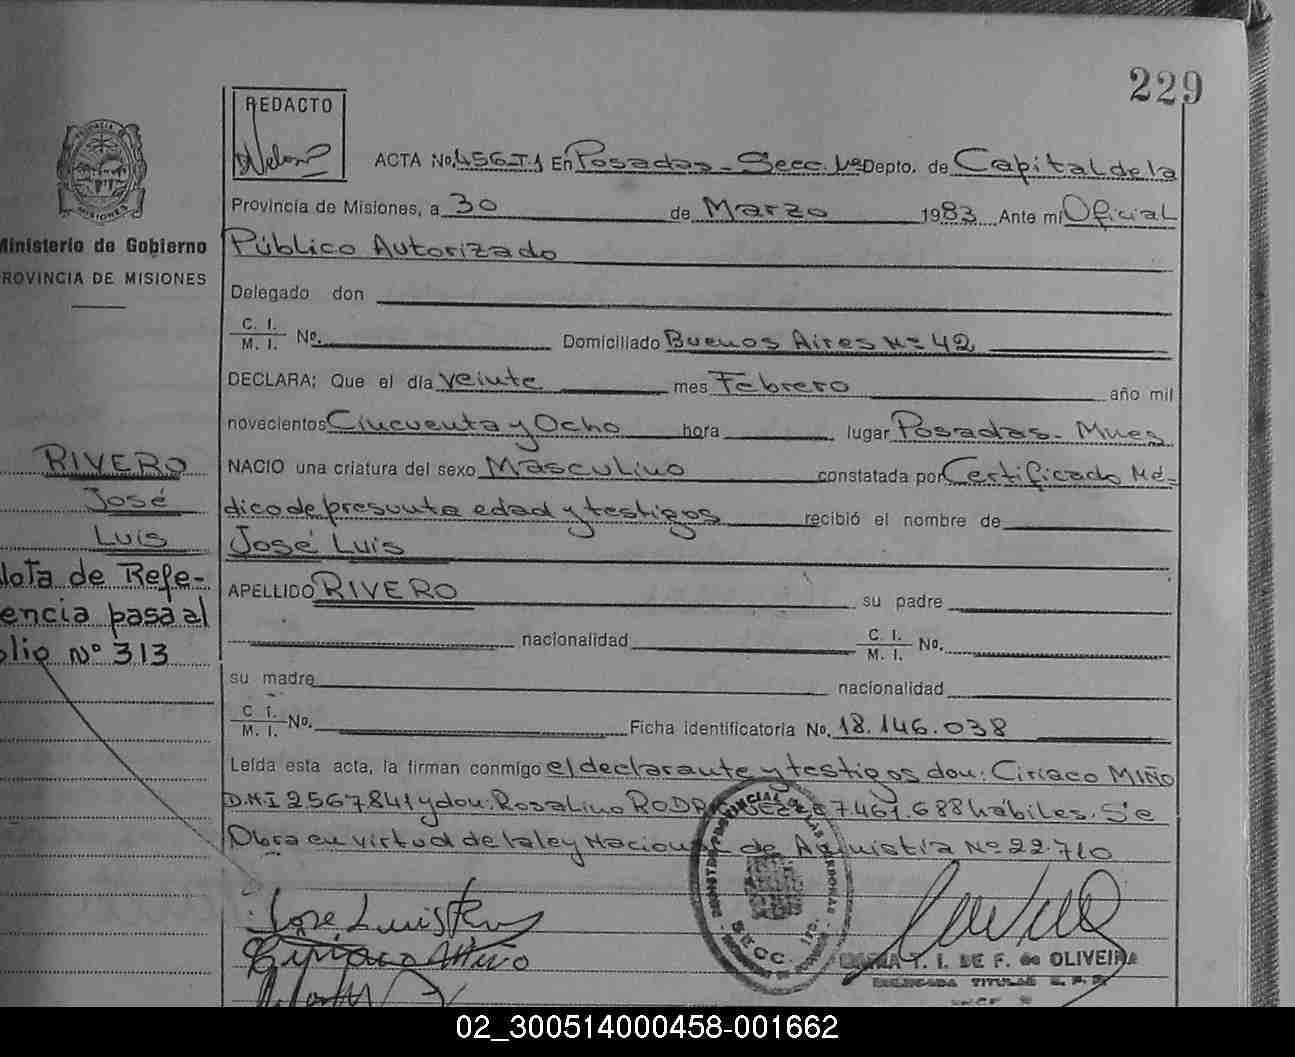 229
REDACTO
ACTA No. 456-T.1 En Posadas - Secc. 1ª Depto. de Capital de la
Provincia de Misiones, a 30 de Marzo 1983 Ante mi Oficial
Público Autorizado
Delegado don
C. I.
M. I. Nº. Domiciliado Buenos Aires Nº 42
DECLARA: Que el día veinte mes Febrero año mil
novecientos Cincuenta y Ocho hora lugar Posadas - Mnes
NACIO una criatura del sexo Masculino constatada por Certificado Mé-
dico de presunta edad y testigos recibió el nombre de
José Luis
APELLIDO RIVERO su padre
nacionalidad C. I.
M. I. No.
su madre nacionalidad
C. I.
M. I. No. Ficha identificatoria No. 18.146.038
Leída esta acta, la firman conmigo el declarante y testigos don: Ciriaco MIÑO
D.M.I 2567841 y don: Rosalino 7461.688 hábiles. Se
Obra en virtud de la ley Nacional de Amnistía Nº 22.710
José Luis
Ciriaco Miño
SECC. 1ra.
T. I. DE F. de OLIVEIRA
MISIONES
Ministerio de Gobierno
PROVINCIA DE MISIONES
RIVERO
José
Luis
Nota de Refe-
encia pasa al
olio Nº 313
02_300514000458-001662